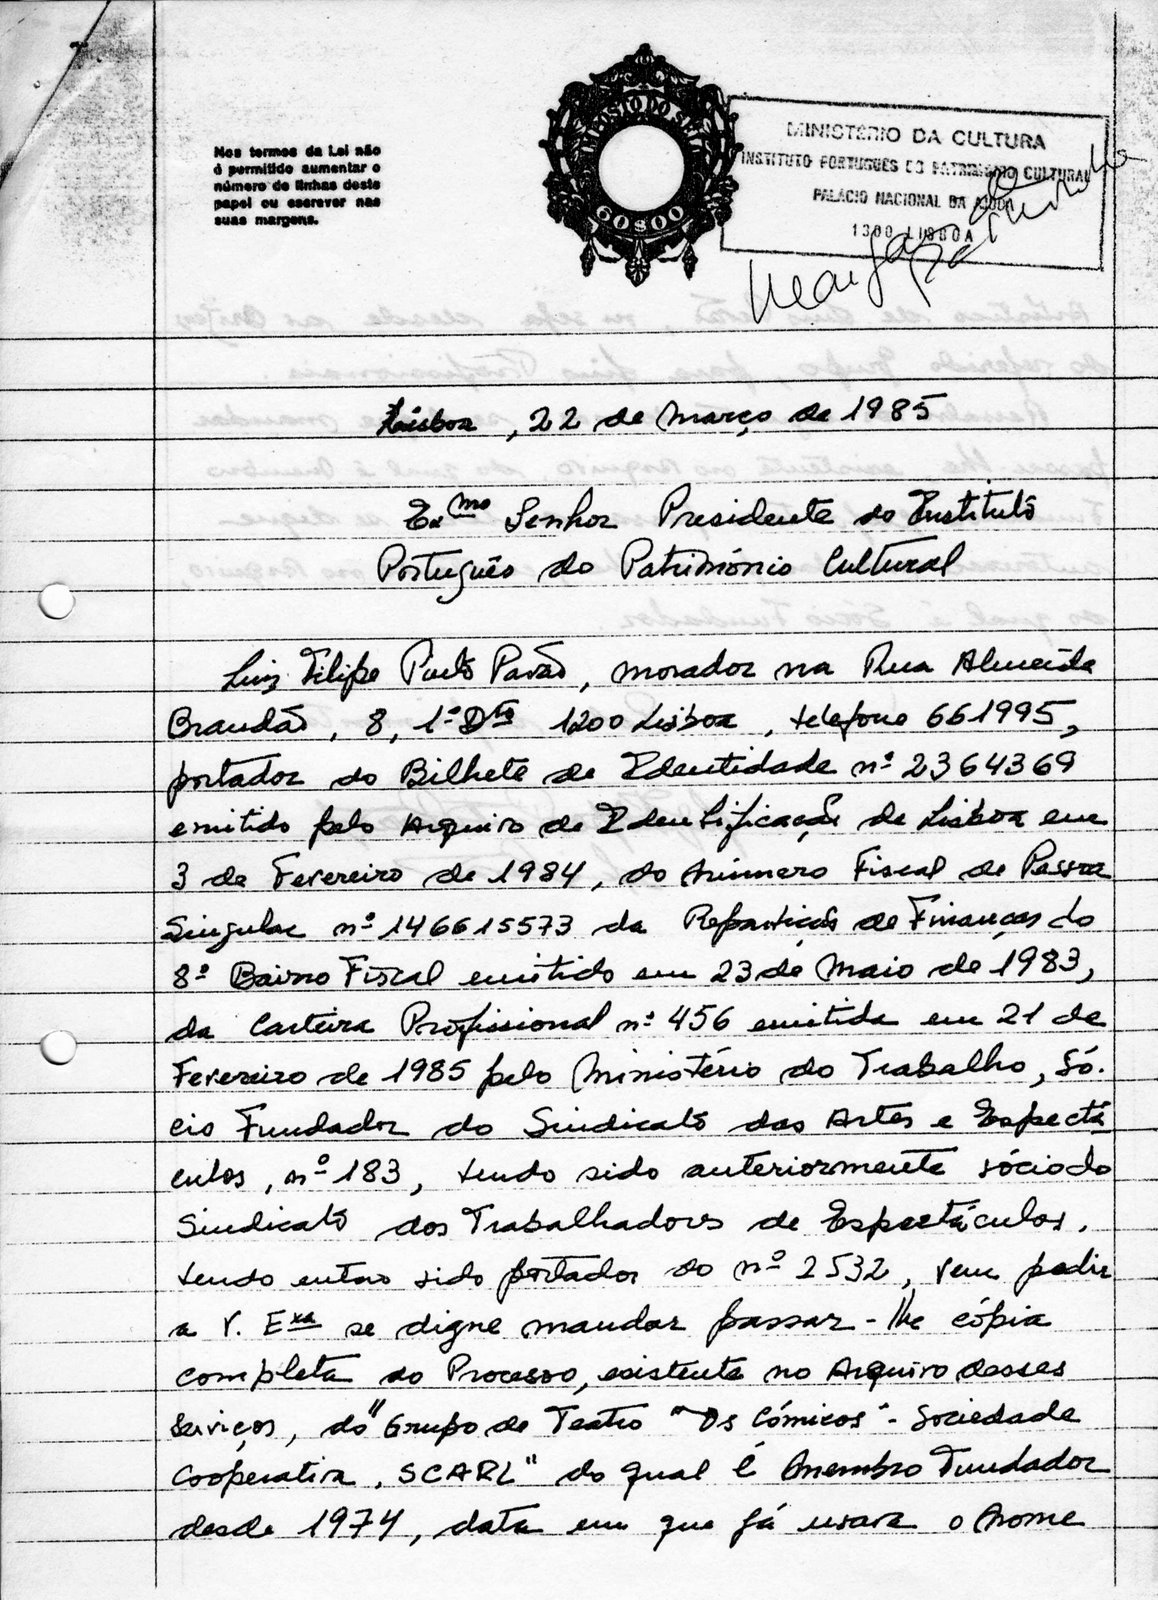 Nos termos da Lei não
é permitido aumentar o
número de linhas deste
papel ou escrever nas
suas margens.
IMPOSTO DO SELO
60$00
MINISTÉRIO DA CULTURA
INSTITUTO PORTUGUÊS DO PATRIMÓNIO CULTURAL
PALÁCIO NACIONAL DA AJUDA
1300 LISBOA
Lisboa, 22 de Março de 1985
Exmo Senhor Presidente do Instituto
Português do Património Cultural
Luiz Filipe Pinto Pavão, morador na Rua Almeida
Brandão, 8, 1º Dto 1200 Lisboa, telefone 661995,
portador do Bilhete de Identidade nº 2364369
emitido pelo Arquivo de Identificação de Lisboa em
3 de Fevereiro de 1984, do número Fiscal de Pessoa
Singular nº 146615573 da Repartição de Finanças do
8º Bairro Fiscal emitido em 23 de Maio de 1983,
da Carteira Profissional nº 456 emitida em 21 de
Fevereiro de 1985 pelo Ministério do Trabalho, Só-
cio Fundador do Sindicato das Artes e Espectá
culos, nº 183, tendo sido anteriormente sócio do
Sindicato dos Trabalhadores de Espectáculos,
tendo então sido portador do nº 2532, vem pedir
a V. Exa se digne mandar passar-lhe cópia
completa do Processo, existente no Arquivo desses
Serviços, do "Grupo de Teatro "Os Cómicos" - Sociedade
Cooperativa, SCARL" do qual é Membro Fundador
desde 1974, data em que já usava o nome